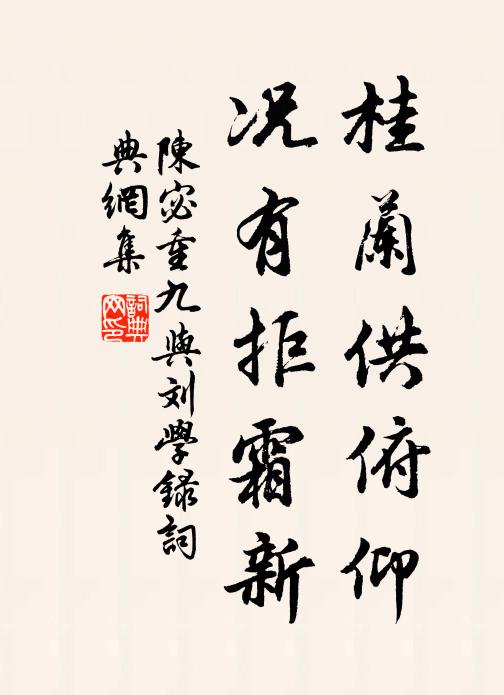 桂蘭供俯仰
况有拒霜新
陳宓重九與刘學録詞
典網集
詞典網印